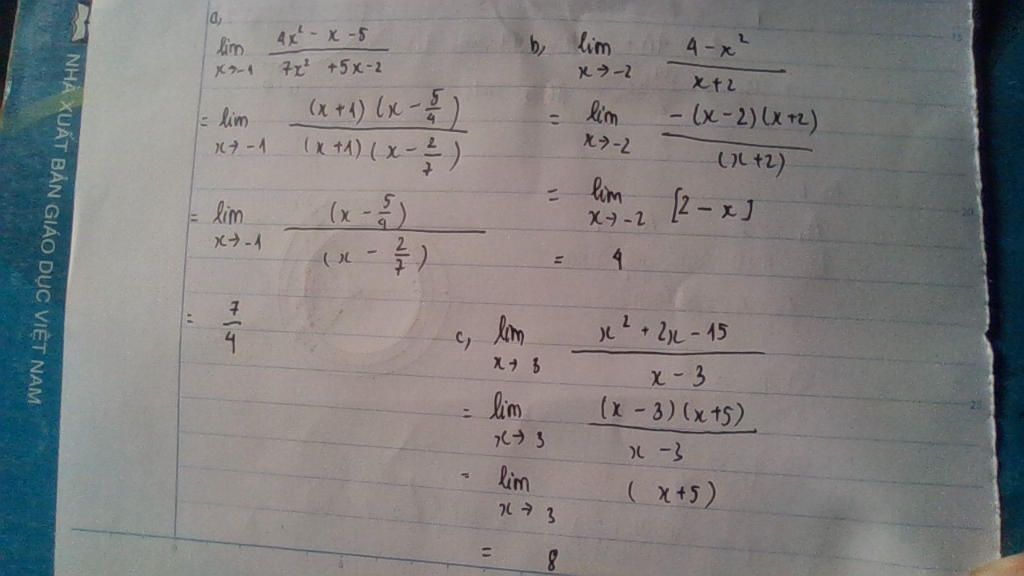 NHÀ XUẤT BẢN GIÁO DỤC VIỆT NAM
a,
lim x→-1 (4x² - x - 5)/(7x² + 5x - 2)
= lim x→-1 ((x+1)(x - 5/4))/((x+1)(x - 2/7))
= lim x→-1 (x - 5/4)/(x - 2/7)
= 7/4
b, lim x→-2 (4 - x²)/(x+2)
= lim x→-2 (-(x-2)(x+2))/((x+2))
= lim x→-2 [2 - x]
= 4
c, lim x→3 (x² + 2x - 15)/(x - 3)
= lim x→3 ((x - 3)(x+5))/(x - 3)
= lim x→3 (x+5)
= 8
15
20
25